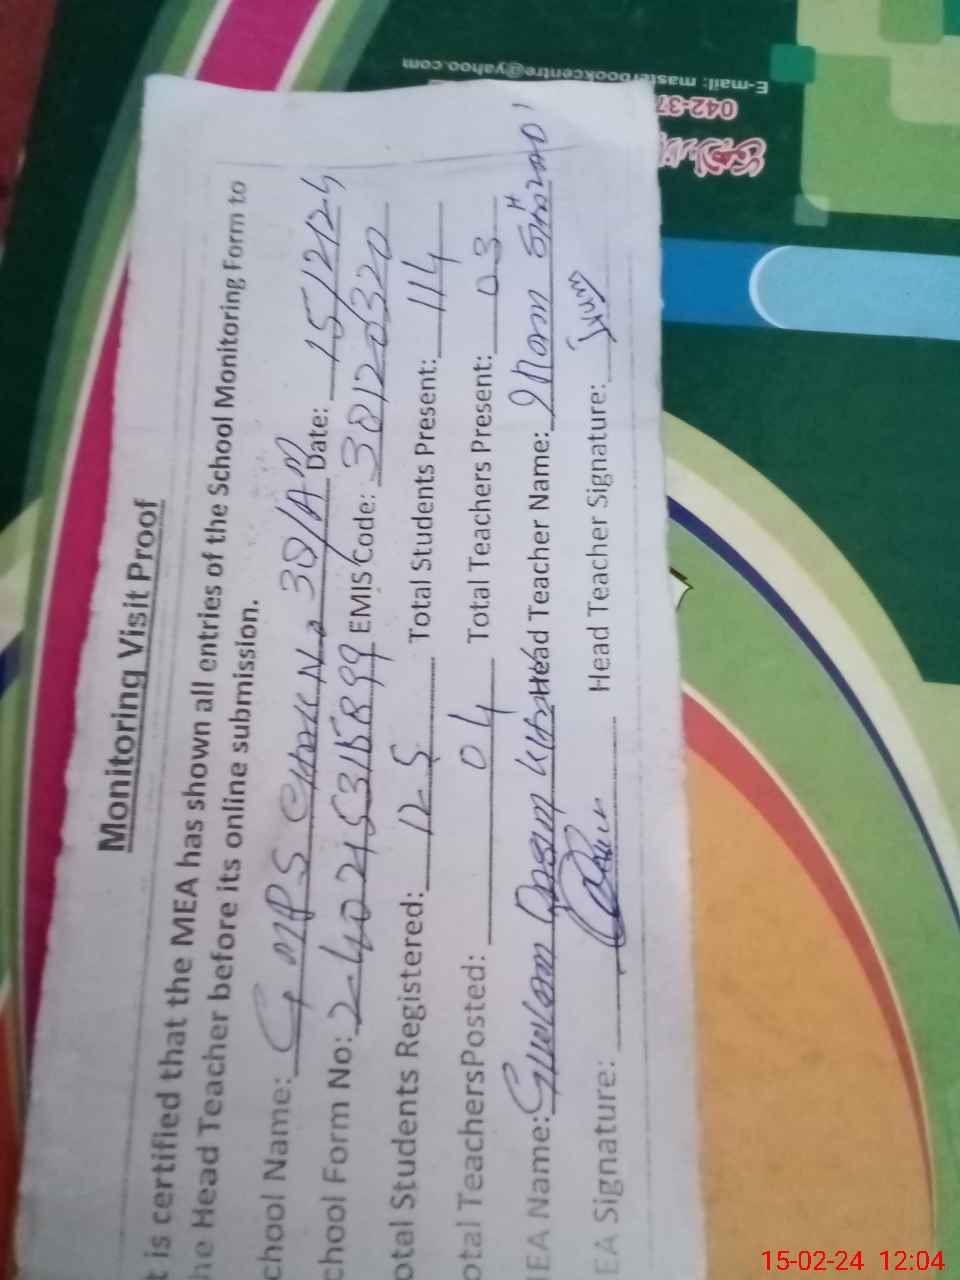 Monitoring Visit Proof
t is certified that the MEA has shown all entries of the School Monitoring Form to
he Head Teacher before its online submission.
chool Name: GMPS Chak No 381AM Date: 15/2/24
chool Form No: 2402153115899 EMIS Code: 38120320
otal Students Registered: 125 Total Students Present: 114
otal TeachersPosted: 04 Total Teachers Present: 03
MEA Name: Ghulam Qasim Head Teacher Name:
EA Signature: Head Teacher Signature:
E-mail: masterbookcentre@yahoo.com
042-37
15-02-24 12:04